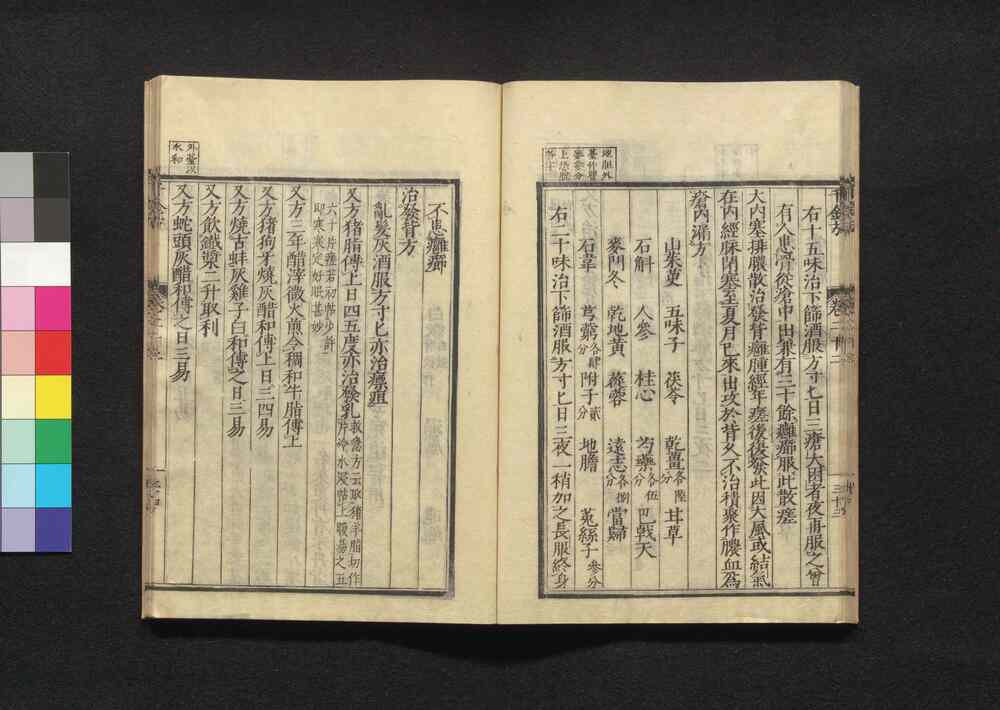 右十五味治下篩酒服方寸匕日三瘡大困者夜再服之曾
有人患骨從瘡中出兼有三十餘癰癤服此散瘥
大內塞排膿散治發背癰腫經年瘥後復發此因大風或結氣
在內經脉閉塞至夏月已來出攻於背久不治積聚作膿血爲
瘡內漏方
山茱萸 五味子 茯苓 乾薑各陸分 甘草
石斛 人參 桂心 芍藥各伍分 巴戟天
麥門冬 乾地黃 蓯蓉 遠志各捌分 當歸
石韋 芎藭各肆分 附子貳分 地膽 菟絲子參分
右二十味治下篩酒服方寸匕日三夜一稍加之長服終身
不患癰癤
治發背方
亂髮灰酒服方寸匕亦治瘭疽
又方猪脂傅上日四五度亦治發乳救急方云取猪羊脂切作片冷水浸帖上暖易之五
六十片瘥若初帖少許即寒寒定好眠甚妙
又方三年醋滓微火煎令稠和牛脂傅上
又方猪狗牙燒灰醋和傅上日三四易
又方燒古蚌灰雞子白和傅之日三易
又方飲鐵漿二升取利
又方蛇頭灰醋和傅之日三易